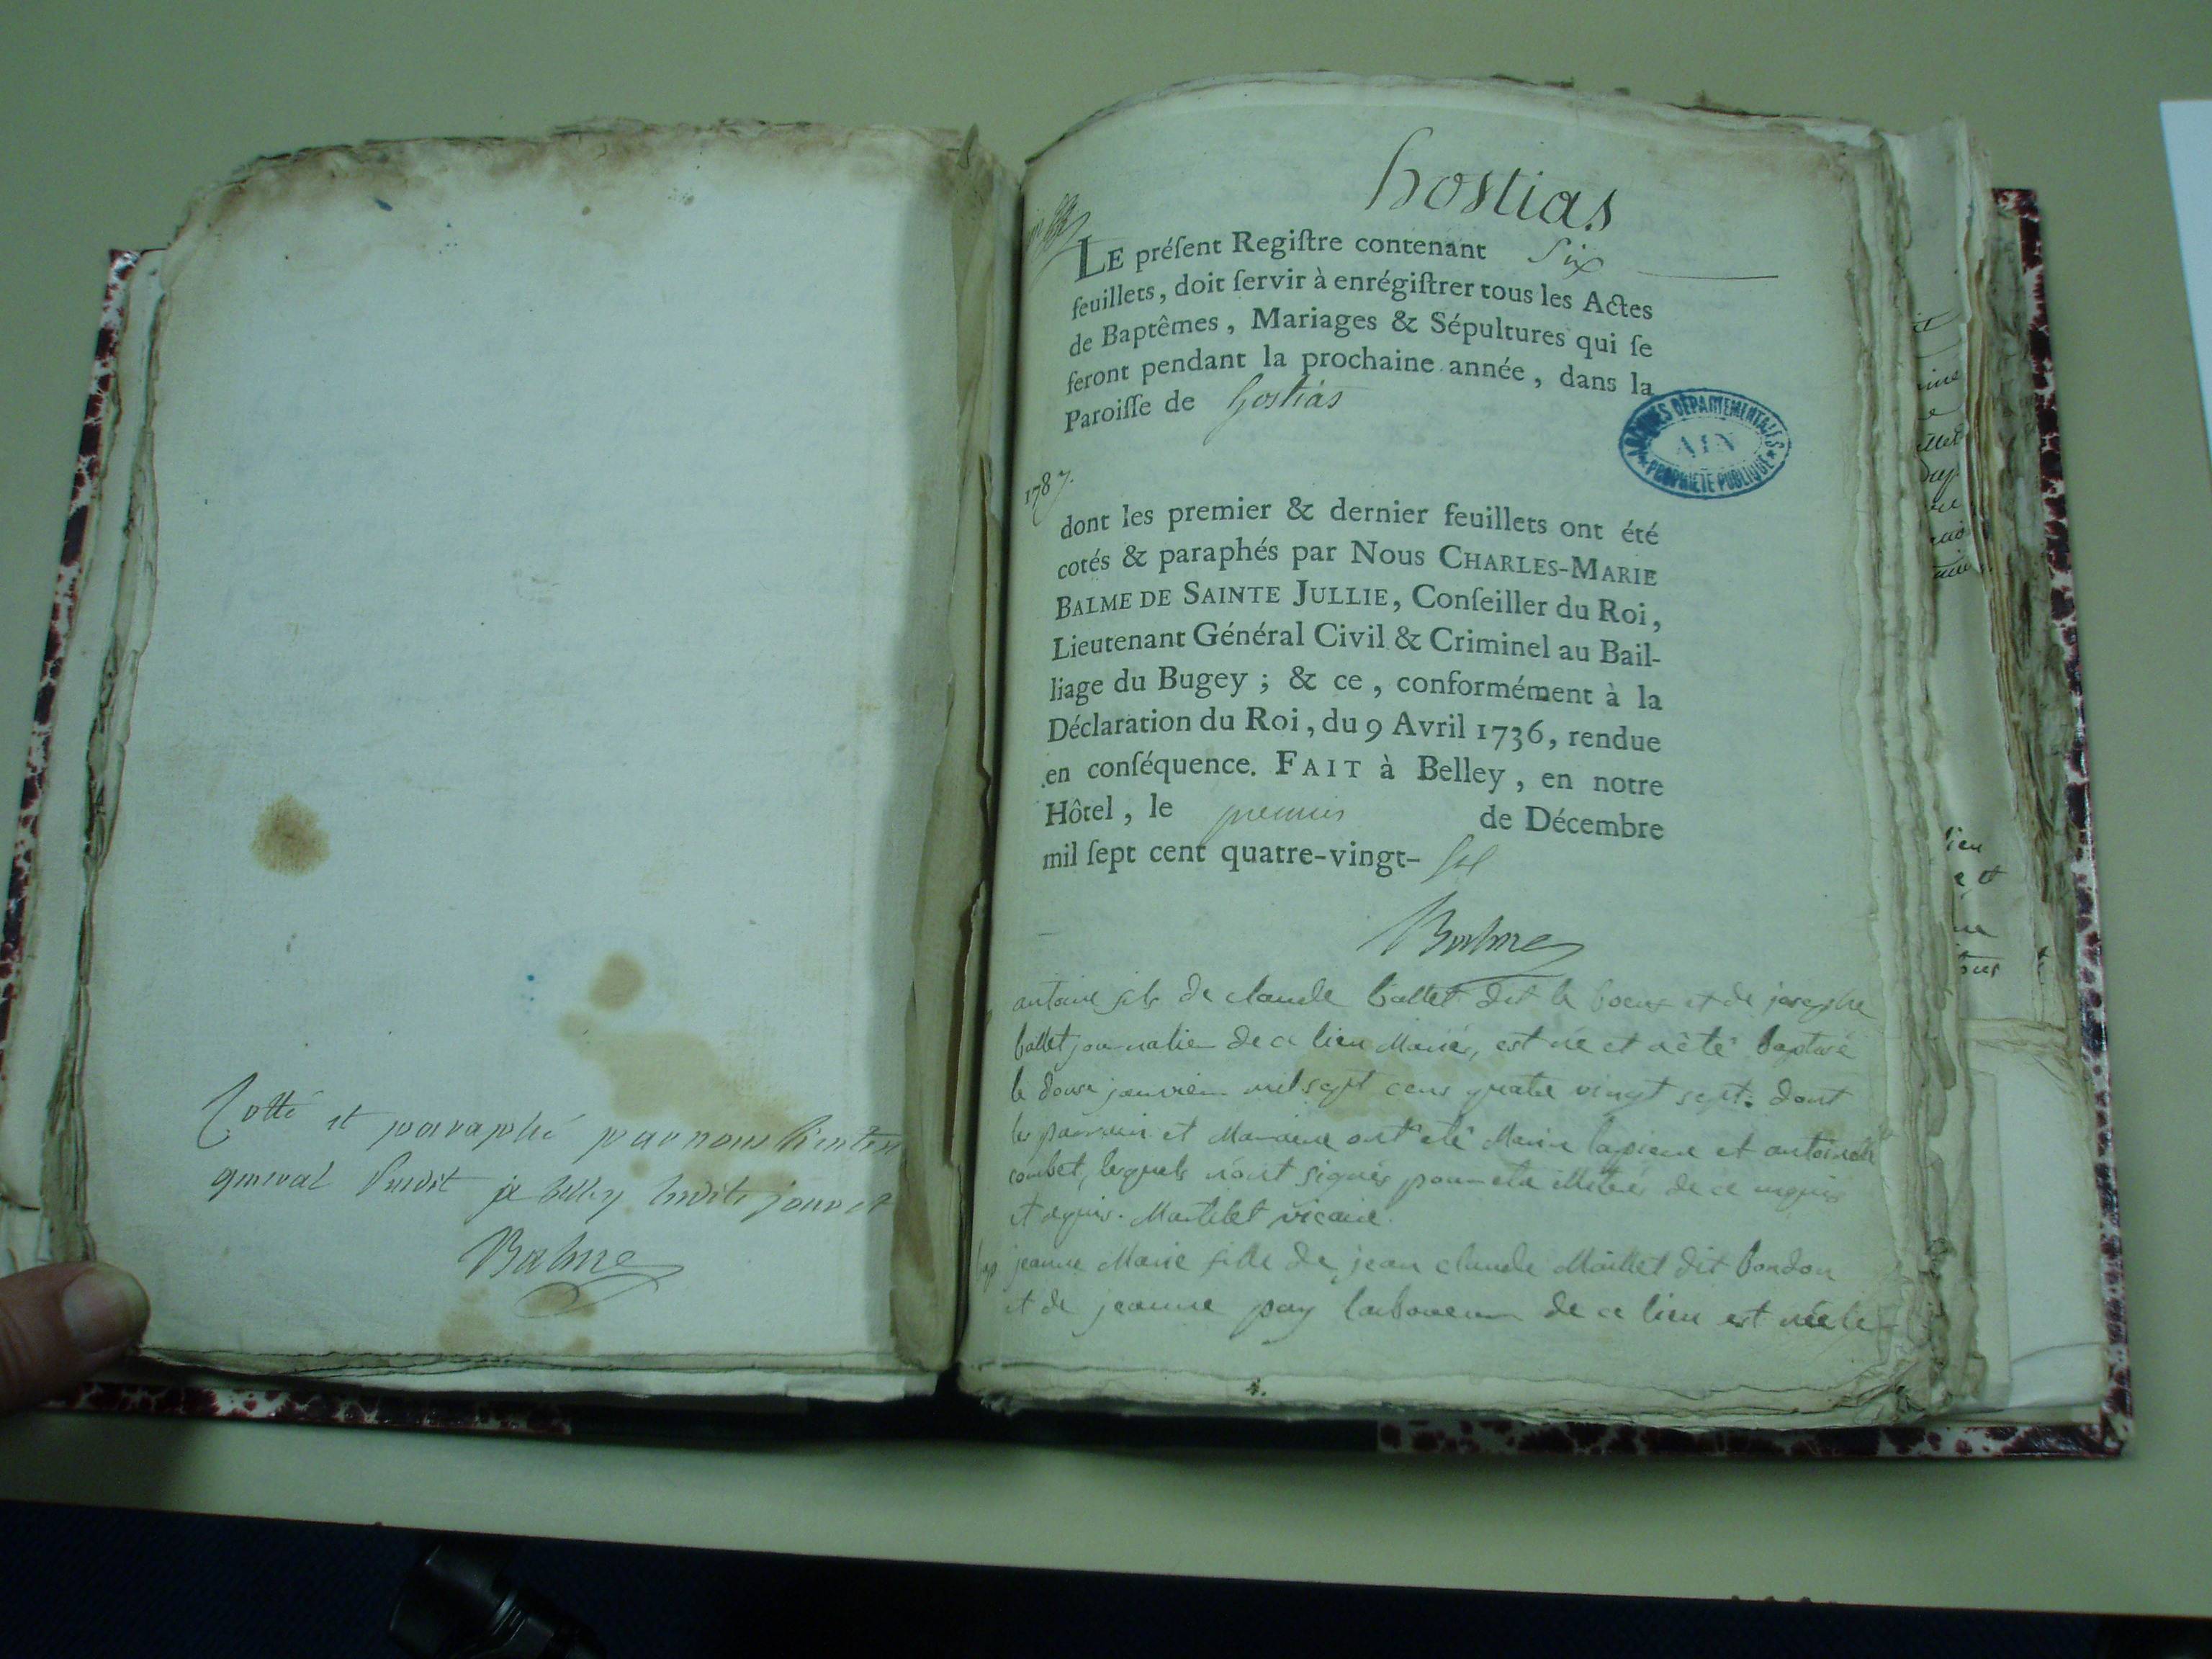 Cotté et paraphé par nous lieuten
general susdit à belley lesdits jour et
Balme
hostias
LE préſent Regiſtre contenant Six
feuillets, doit ſervir à enrégiſtrer tous les Actes
de Baptêmes, Mariages & Sépultures qui ſe
feront pendant la prochaine année, dans la
Paroiſſe de hostias
ARCHIVES DÉPARTEMENTALES
AIN
PROPRIÉTÉ PUBLIQUE
1787.
dont les premier & dernier feuillets ont été
cotés & paraphés par Nous CHARLES-MARIE
BALME DE SAINTE JULLIE, Conſeiller du Roi,
Lieutenant Général Civil & Criminel au Bail-
liage du Bugey ; & ce, conformément à la
Déclaration du Roi, du 9 Avril 1736, rendue
en conſéquence. FAIT à Belley, en notre
Hôtel, le premier de Décembre
mil ſept cent quatre-vingt- six
Balme
antoine fils de claude ballet dit le boeuf et de josephe
ballet journalier de ce lieu Mariés, est né et a été baptisé
le douze janvier mil sept cens quatre vingt sept. dont
les parrain et Maraine ont été Marin lapierre et antoinette
combet, lesquels n'ont signés pour être illitérés de ce enquis
et requis. Martelet vicaire.
bap jeanne Marie fille de jean claude Maillet dit bondon
et de jeanne pay laboureur de ce lieu est née le